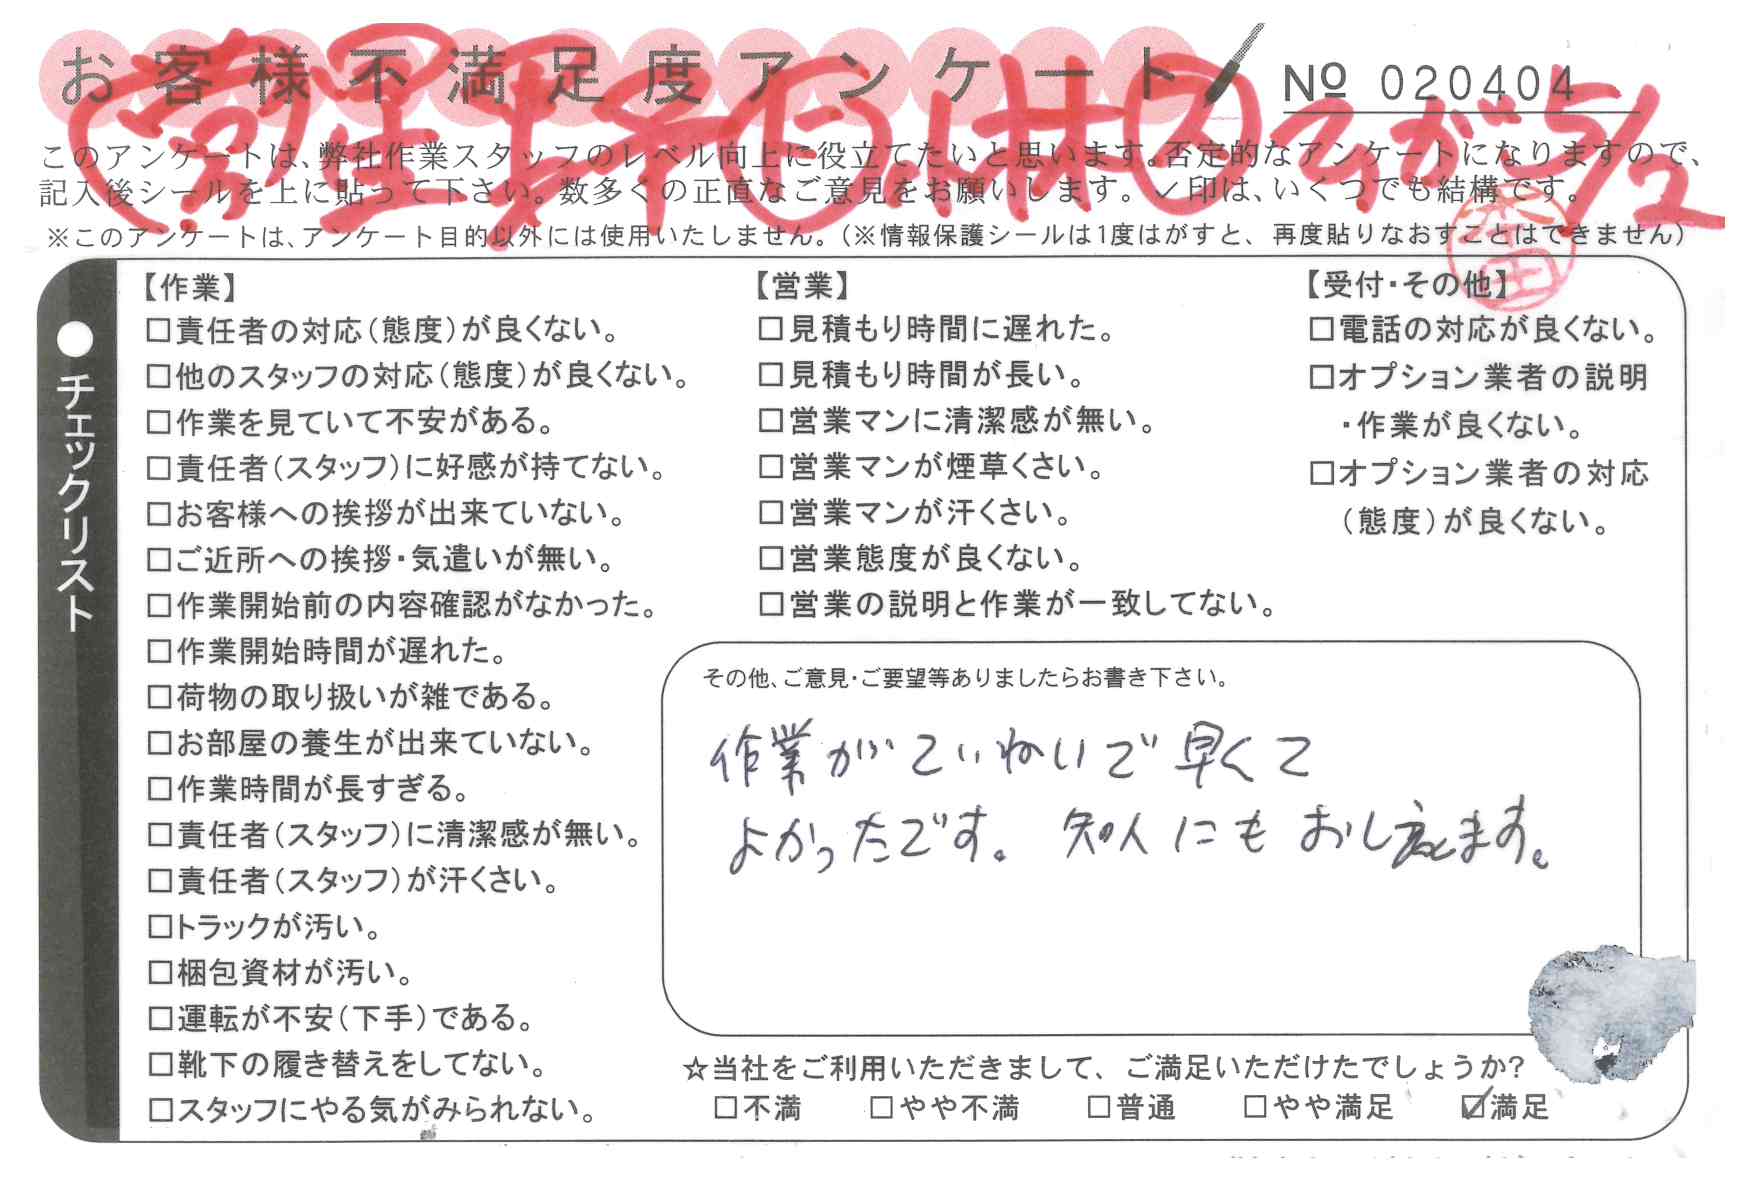 お客様不満足度アンケート
№ 020404
このアンケートは、弊社作業スタッフのレベル向上に役立てたいと思います。否定的なアンケートになりますので、
記入後シールを上に貼って下さい。数多くの正直なご意見をお願いします。✓印は、いくつでも結構です。
※このアンケートは、アンケート目的以外には使用いたしません。(※情報保護シールは1度はがすと、再度貼りなおすことはできません)
5/2
チェックリスト
【作業】
□責任者の対応(態度)が良くない。
□他のスタッフの対応(態度)が良くない。
□作業を見ていて不安がある。
□責任者(スタッフ)に好感が持てない。
□お客様への挨拶が出来ていない。
□ご近所への挨拶・気遣いが無い。
□作業開始前の内容確認がなかった。
□作業開始時間が遅れた。
□荷物の取り扱いが雑である。
□お部屋の養生が出来ていない。
□作業時間が長すぎる。
□責任者(スタッフ)に清潔感が無い。
□責任者(スタッフ)が汗くさい。
□トラックが汚い。
□梱包資材が汚い。
□運転が不安(下手)である。
□靴下の履き替えをしてない。
□スタッフにやる気がみられない。
【営業】
□見積もり時間に遅れた。
□見積もり時間が長い。
□営業マンに清潔感が無い。
□営業マンが煙草くさい。
□営業マンが汗くさい。
□営業態度が良くない。
□営業の説明と作業が一致してない。
【受付・その他】
□電話の対応が良くない。
□オプション業者の説明
・作業が良くない。
□オプション業者の対応
(態度)が良くない。
その他、ご意見・ご要望等ありましたらお書き下さい。
作業がていねいで早くて
よかったです。知人にもおしえます。
☆当社をご利用いただきまして、ご満足いただけたでしょうか?
□不満 □やや不満 □普通 □やや満足 ☑満足